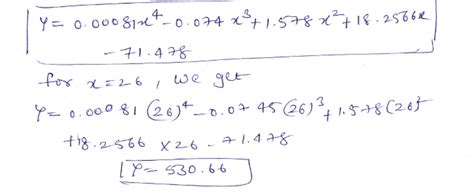 Y = 0.00081x⁴ - 0.074x³ + 1.578x² + 18.2566x
- 71.478
for x = 26, we get
Y = 0.00081 (26)⁴ - 0.0745 (26)³ + 1.578 (26)²
+ 18.2566 × 26 - 71.478
Y = 530.66